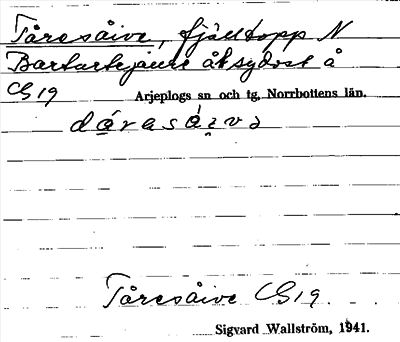 Tåresåive, fjälltopp N
Bartaurkjaure åt sydost å
CG 19
Arjeplogs sn och tg, Norrbottens län.
Tåresåive CG 19.
Sigvard Wallström, 1941.